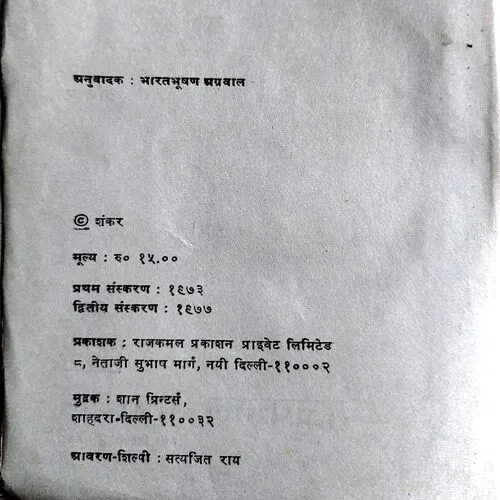 अनुवादक : भारतभूषण अग्रवाल
© शंकर
मूल्य : रु० १५.००
प्रथम संस्करण : १९७३
द्वितीय संस्करण : १९७७
प्रकाशक : राजकमल प्रकाशन प्राइवेट लिमिटेड
८, नेताजी सुभाष मार्ग, नयी दिल्ली-११०००२
मुद्रक : शान प्रिन्टर्स,
शाहदरा-दिल्ली-११००३२
आवरण-शिल्पी : सत्यजित राय